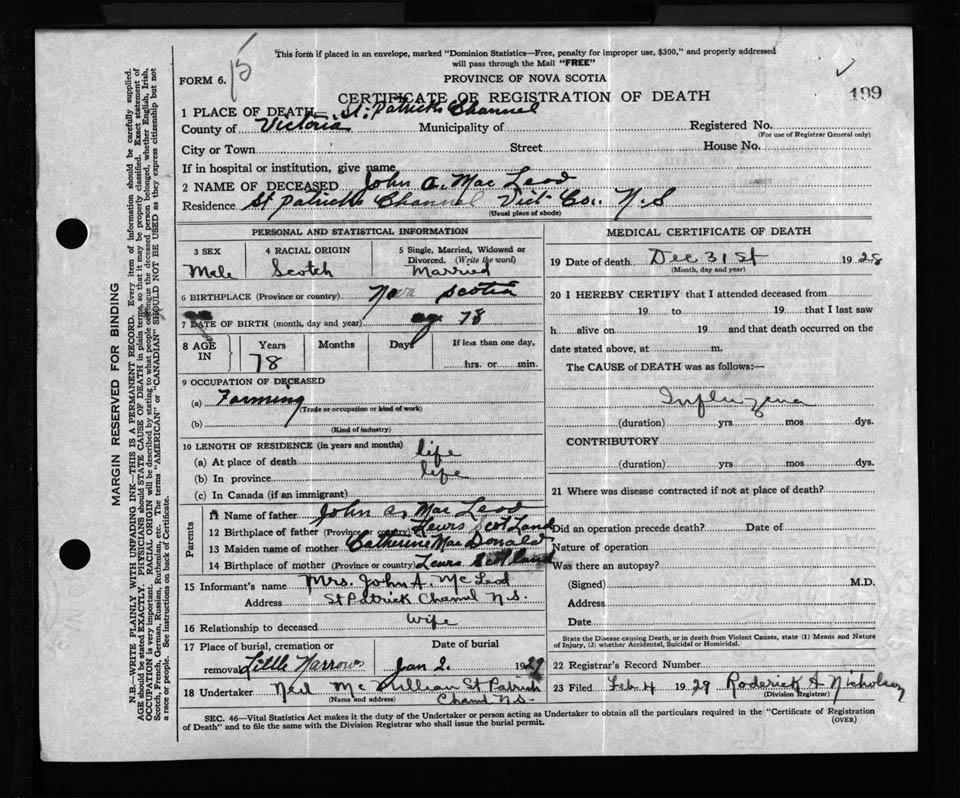 15
This form if placed in an envelope, marked "Dominion Statistics—Free, penalty for improper use, $300," and properly addressed
will pass through the Mail "FREE"
FORM 6.
PROVINCE OF NOVA SCOTIA
CERTIFICATE OF REGISTRATION OF DEATH
199
1 PLACE OF DEATH St. Patricks Channel
County of Victoria Municipality of Registered No.
(For use of Registrar General only)
City or Town Street House No.
If in hospital or institution, give name
2 NAME OF DECEASED John A. Mac Leod
Residence St Patricks Channel Vict- Co. N.S
(Usual place of abode)
PERSONAL AND STATISTICAL INFORMATION
3 SEX 4 RACIAL ORIGIN 5 Single, Married, Widowed or
Divorced. (Write the word)
Male Scotch Married
6 BIRTHPLACE (Province or country) Nova Scotia
7 DATE OF BIRTH (month, day and year) age 78
8 AGE IN Years Months Days If less than one day,
78 hrs. or min.
9 OCCUPATION OF DECEASED
(a) Farming
(Trade or occupation or kind of work)
(b)
(Kind of industry)
10 LENGTH OF RESIDENCE (in years and months)
(a) At place of death life
(b) In province life
(c) In Canada (if an immigrant)
Parents
11 Name of father John A. Mac Leod
12 Birthplace of father (Province or country) Lewis Scotland
13 Maiden name of mother Catherine Mac Donald
14 Birthplace of mother (Province or country) Lewis Scotland
15 Informant's name Mrs. John A. McLeod
Address St Patrick Chanul N.S.
16 Relationship to deceased wife
17 Place of burial, cremation or Date of burial
removal Little Narrows Jan 2. 1929
18 Undertaker Neil McMillian St Patrick
(Name and address) Chanl N.S.
MEDICAL CERTIFICATE OF DEATH
19 Date of death Dec 31 St 1928
(Month, day and year)
20 I HEREBY CERTIFY that I attended deceased from
19 to 19 that I last saw
h alive on 19 and that death occurred on the
date stated above, at m.
The CAUSE of DEATH was as follows:—
Influzena
(duration) yrs mos dys.
CONTRIBUTORY
(duration) yrs mos dys.
21 Where was disease contracted if not at place of death?
Did an operation precede death? Date of
Nature of operation
Was there an autopsy?
(Signed) M.D.
Address
Date
State the Disease causing Death, or in death from Violent Causes, state (1) Means and Nature
of Injury, (2) whether Accidental, Suicidal or Homicidal.
22 Registrar's Record Number
23 Filed Feb 4 1929 Roderick A Nicholson
(Division Registrar)
SEC. 46—Vital Statistics Act makes it the duty of the Undertaker or person acting as Undertaker to obtain all the particulars required in the "Certificate of Registration
of Death" and to file the same with the Division Registrar who shall issue the burial permit.
(OVER)
MARGIN RESERVED FOR BINDING
N.B.—WRITE PLAINLY WITH UNFADING INK—THIS IS A PERMANENT RECORD. Every item of information should be carefully supplied.
AGE should be stated EXACTLY. PHYSICIANS should STATE CAUSE OF DEATH in plain terms, so that it may be properly classified. Exact statement of
OCCUPATION is very important. RACIAL ORIGIN will be described by stating to what people or tongue the deceased person belonged, whether English, Irish,
Scotch, French, German, Russian, Ruthenian, etc. The terms "AMERICAN" or "CANADIAN" SHOULD NOT BE USED as they express citizenship but not
a race or people. See instructions on back of Certificate.